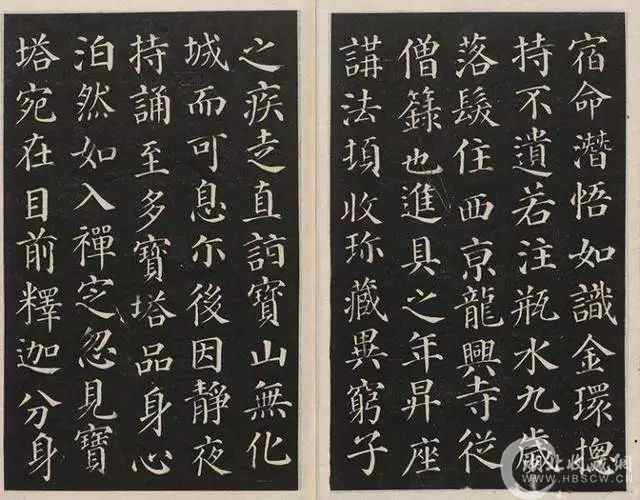 宿命潛悟如識金環揔
持不遺若注瓶水九歲
落髮住西京龍興寺從
僧籙也進具之年昇座
講法頓收珎藏異窮子
之疾走直詣寶山無化
城而可息尒後因靜夜
持誦至多寶塔品身心
泊然如入禪定忽見寶
塔宛在目前釋迦分身
WWW.HBSCW.CN